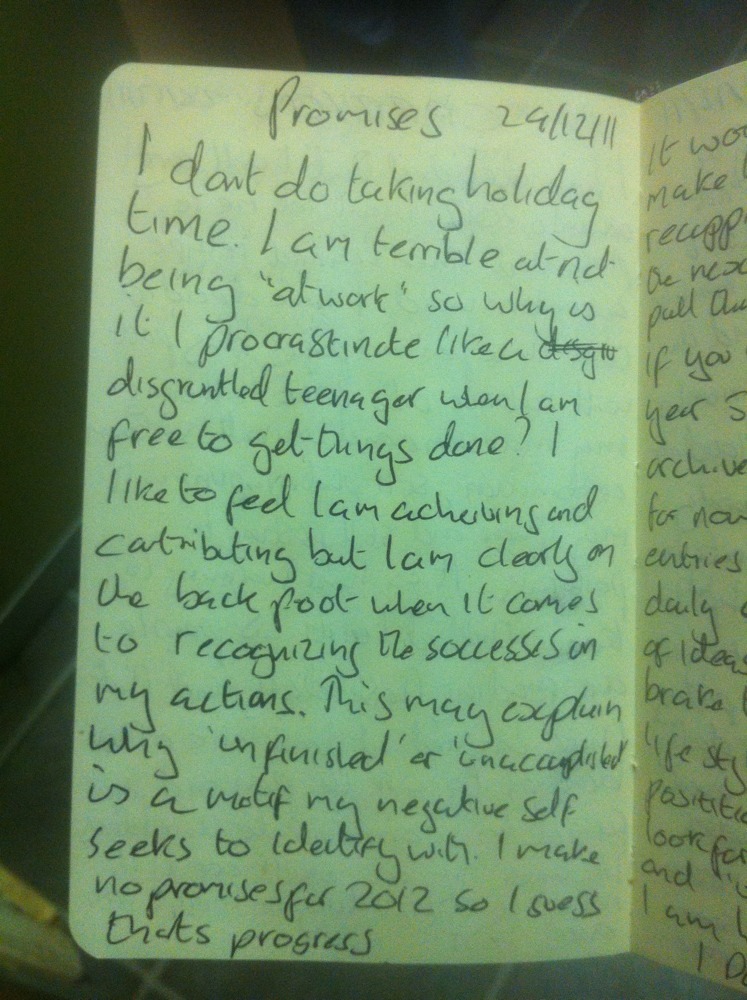 Promises 29/12/11
I dont do taking holiday
time. I am terrible at not
being "at work" so why is
it I procrastinate like a disgru
disgruntled teenager when I am
free to get things done? I
like to feel I am acheiving and
contributing but I am clearly on
the back foot when it comes
to recognizing the successes in
my actions. This may explain
why 'unfinished' or 'unaccomplished'
is a motif my negative self
seeks to identify with. I make
no promises for 2012 so I guess
thats progress
It wo
make
recapp
the nex
pull the
If you
year
archive
for now
entries
daily
of ideas
brake
life sty
look for
and
I am
I